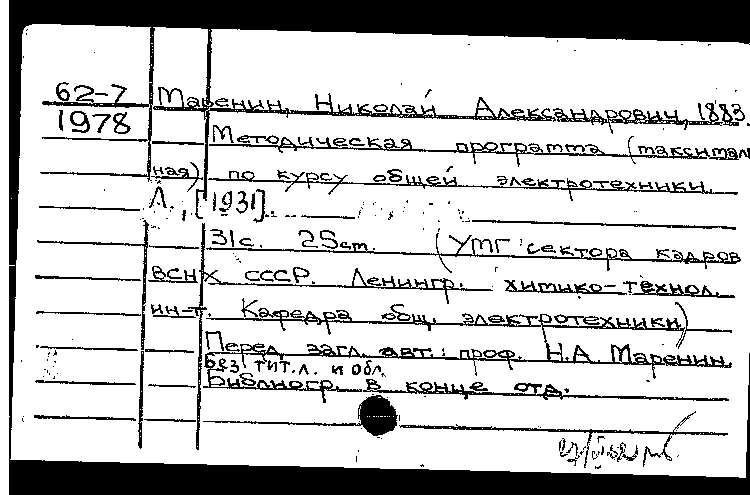 62-7
1978
Маренин, Николай Александрович, 1883.
Методическая программа (максималь
ная) по курсу общей электротехники.
Л., [1931].
31с. 25см. (УМГ сектора кадров
ВСНХ СССР. Ленингр. химико-технол.
ин-т. Кафедра общ. электротехники)
Перед загл. авт.: проф. Н.А. Маренин.
Без тит. л. и обл.
Библиогр. в конце отд.